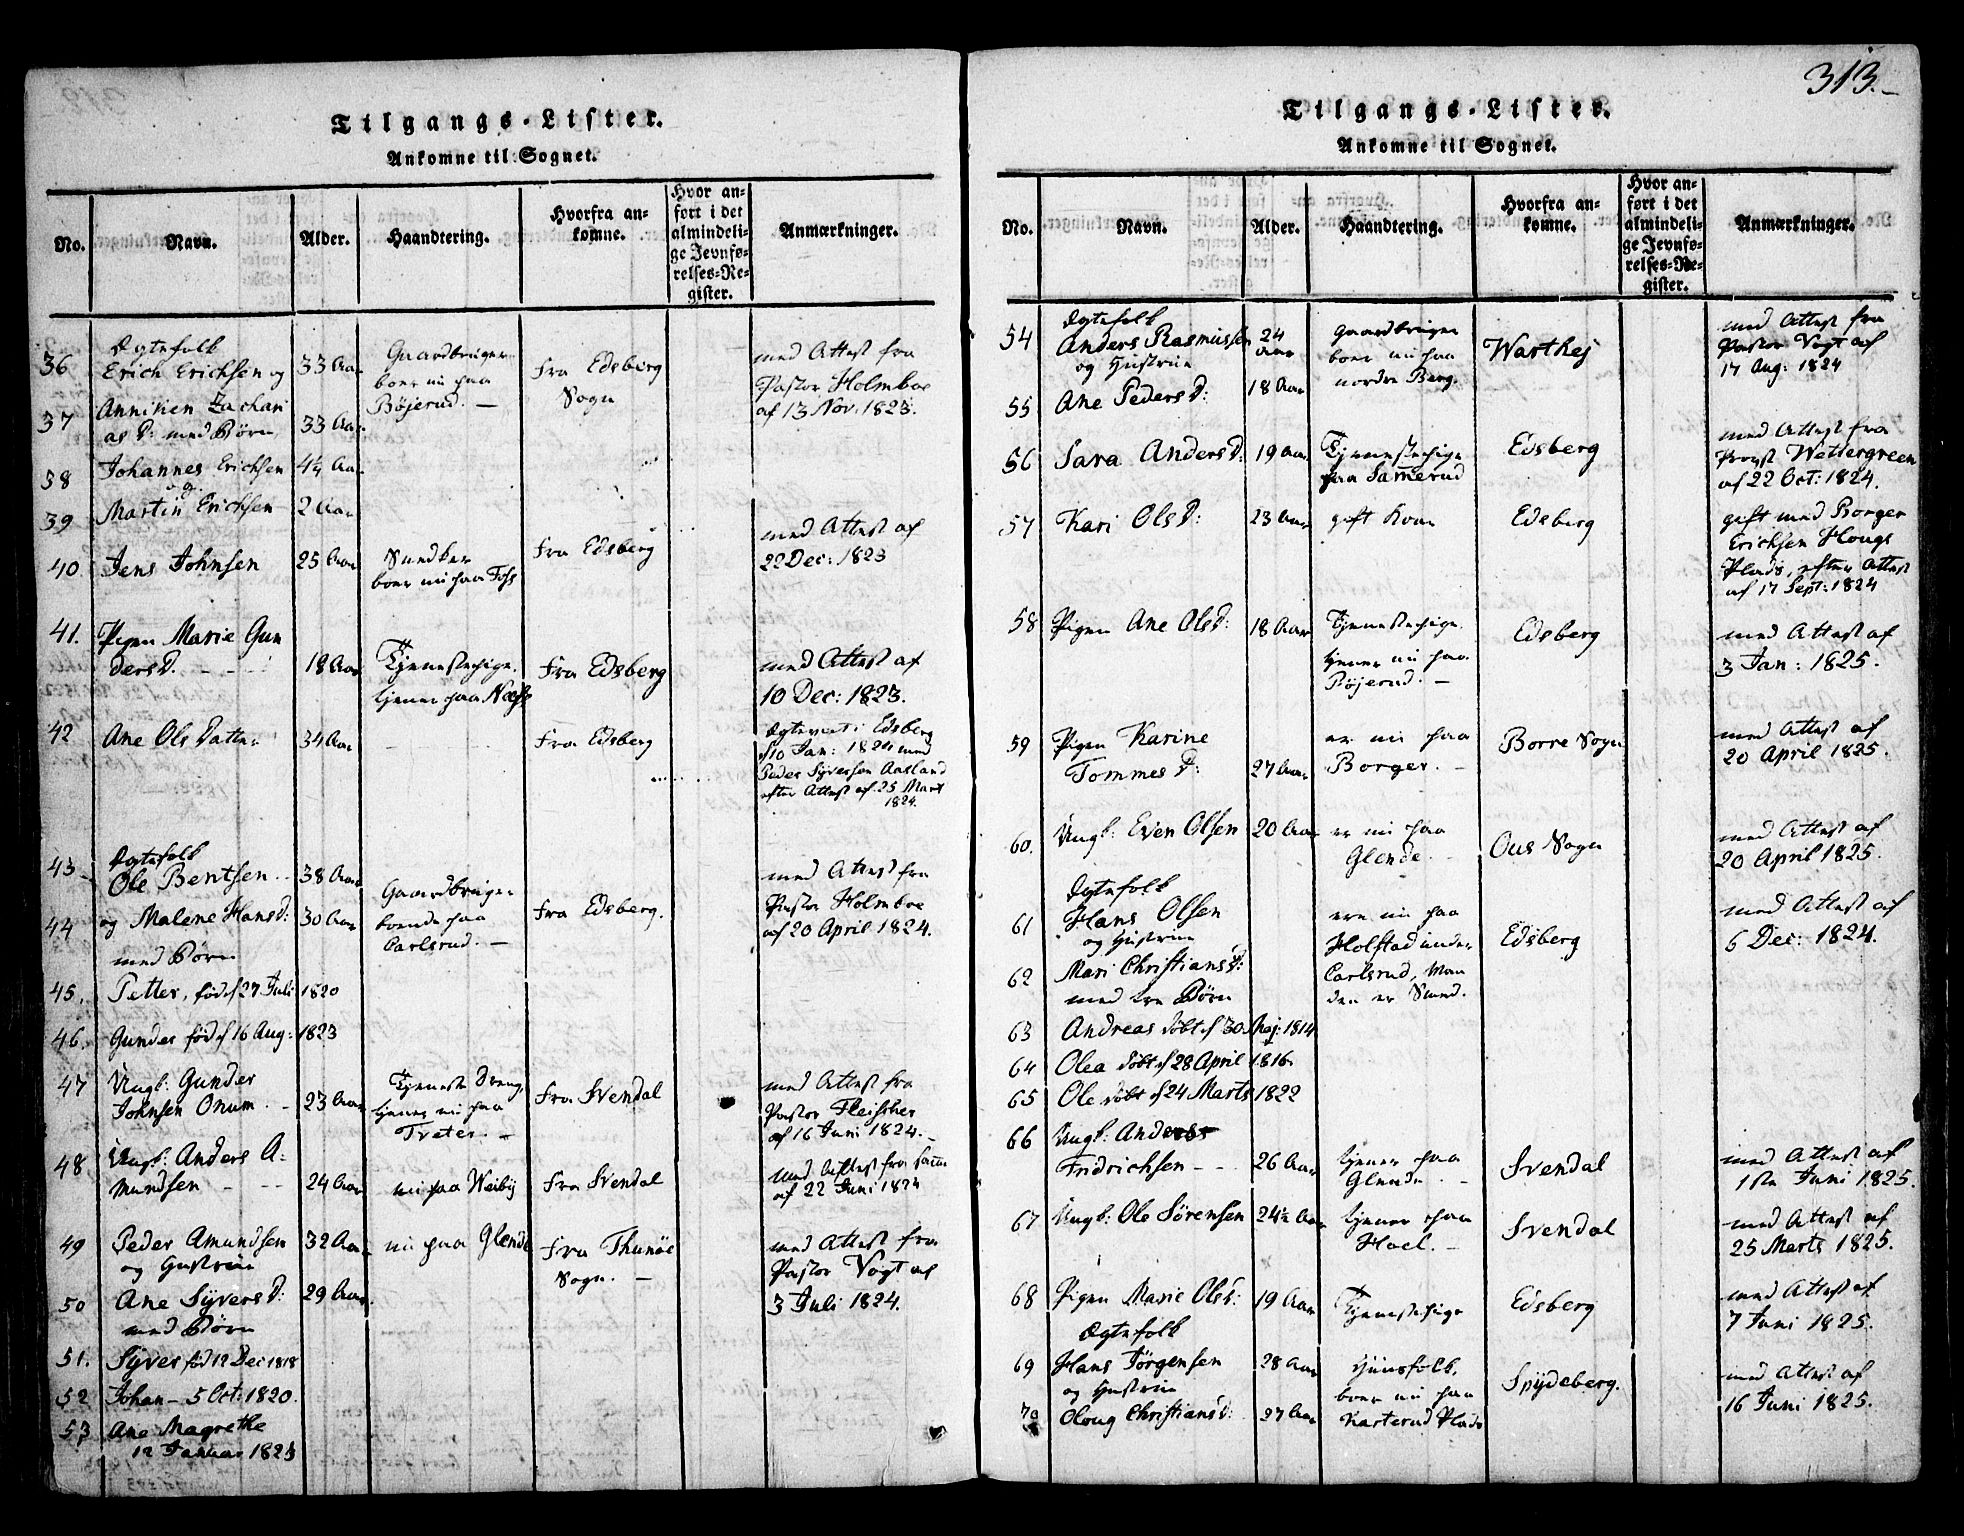 Tilgangs-Lister.
Ankomne til Sognet.
No. Navn. Alder. Haandtering. Hvorfra ankomne. Hvor anført i det almindelige Jevnførelses-Register. Anmærkninger.
Ægtefolk
36 Erich Erichsen og 33 Aar Gaardbruger boer nu paa Bøjerud. — fra Edsberg Sogn med Attest fra Pastor Holmboe af 13 Nov. 1823.
37 Anniken Zacharias D: med Børn 33 Aar
58 Johannes Erichsen og 4½ Aar
39 Martin Erichsen 2 Aar
40 Jens Johnsen 25 Aar Snedker boer nu paa Foss fra Edsberg med Attest af 22 Dec: 1823
41. Pigen Marie Gundersd. 18 Aar Tjenestepige, tjener paa Næss fra Edsberg med Attest af 10 Dec: 1823.
42 Ane Ols Datter 34 Aar fra Edsberg Ægteviet i Edsberg d 10 Jan: 1824 med Peder Syversen Aasland efter Attest af 25 Mart 1824.
Ægtefolk
43 Ole Bentsen 38 Aar Gaardbruger boende paa Carlsrud. — fra Edsberg. med Attest fra Pastor Holmboe af 20 April 1824.
44 og Malene Hansd: 30 Aar
med Børn
45. Petter, fød d 27 Juli 1820
46. Gunder fød d 16 Aug: 1823
47 Ungk: Gunder Johnsen Onum 23 Aar Tjeneste Dreng, tjener nu paa Treter. — fra Svendal med Attest fra Pastor Fleischer af 16 Juni 1824. —
48 Ungk: Anders Amundsen 24 Aar nu paa Weiby fra Svendal med Attest fra samme af 22 Juni 1824
49 Peder Amundsen 32 Aar nu paa Glende fra Thunøe Sogn. — med Attest fra Pastor Vogt af 3 Juli 1824.
og Hustrue
50 Ane Syversd: 29 Aar
med Børn
51. Syver fød 12 Dec 1818
52 Johan — 5 Oct: 1820.
53 Ane Magrethe
12 Januar 1823
313. —
Tilgangs-Lister.
Ankomne til Sognet.
No. Navn. Alder. Haandtering. Hvorfra ankomne. Hvor anført i det almindelige Jevnførelses-Register. Anmærkninger.
Ægtefolk
54 Anders Rasmussen 24 Aar gaardbruger boer nu paa nordre Berg. Warthej med Attest fra Pastor Vogt af 17 Aug: 1824
og Hustrue
55 Ane Peders D: 18 Aar
56 Sara Anders D: 19 Aar Tjenestepige paa Samerud Edsberg med Attest fra Provst Wettergreen af 22 Oct: 1824.
57 Kari Ols D: 23 Aar gift Kone Edsberg gift med Borger Erichsen Hougs Plads, efter Attest af 17 Sept: 1824
58 Pigen Ane Olsd: 18 Aar Tjenestepige tjener nu paa Bøjerud. — Edsberg med Attest af 3 Jan: 1825.
59 Pigen Karine Tommes D: 27 Aar er nu paa Borger. — Borre Sogn med Attest af 20 April 1825.
60. Ungk: Even Olsen 20 Aar er nu paa Glende. Ous Sogn med Attest af 20 April 1825.
Ægtefolk
61 Hans Olsen ere nu paa Holstad under Carlsrud, Manden er Smed. Edsberg med Attest af 6 Dec: 1824.
og Hustrue
62 Mari Christians D:
med tre Børn
63 Andreas døbt d 30 Maj: 1814
64 Olea døbt d 28 April 1816
65 Ole døbt d 24 Marts 1822
66 Ungk: Anders Fridrichsen 26 Aar tjener paa Glende. Svendal med Attest af 1ste Juni 1825.
67 Ungk: Ole Sørensen 24½ Aar tjener paa Hoel. — Svendal med Attest af 25 Marts 1825.
68 Pigen Marie Olsd: 19 Aar Tjenestepige Edsberg med Attest af 7 Juni 1825.
Ægtefolk
69 Hans Jørgensen 28 Aar Huusfolk, boer nu paa Karterud Plads Spydeberg. med Attest af 16 Juni 1825.
og Hustrue
70 Oloug Christians D: 27 Aar